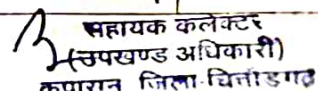 सहायक कलेक्टर
(उपखण्ड अधिकारी)
कपासन जिला-चित्तौड़गढ़